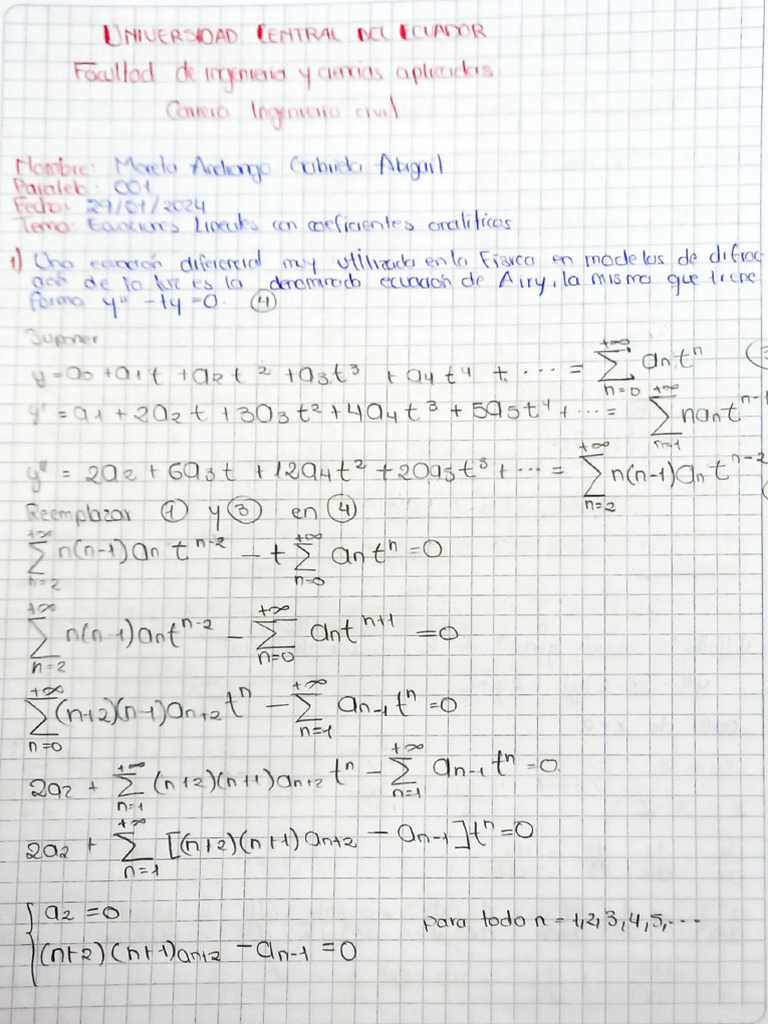 UNIVERSIDAD CENTRAL DEL ECUADOR
Facultad de ingeniería y ciencias aplicadas
Carrera Ingeniería civil
Nombre: Gabriela Abigail
Paralelo: 001
Fecha: 29/01/2024
Tema: Ecuaciones Lineales con coeficientes analíticos
1) Una ecuación diferencial muy utilizada en la Física en modelos de difrac
ción de la luz es la denominada ecuación de Airy, la misma que tiene
forma y'' - ty = 0. (4)
Suponer
y = a0 + a1t + a2t² + a3t³ + a4t⁴ + ... = ∑_{n=0}^{+∞} an tⁿ
y' = a1 + 2a2t + 3a3t² + 4a4t³ + 5a5t⁴ + ... = ∑_{n=1}^{+∞} n an t^{n-1}
y'' = 2a2 + 6a3t + 12a4t² + 20a5t³ + ... = ∑_{n=2}^{+∞} n(n-1)an t^{n-2}
Reemplazar (1) y (3) en (4)
∑_{n=2}^{+∞} n(n-1)an t^{n-2} - t ∑_{n=0}^{+∞} an tⁿ = 0
∑_{n=2}^{+∞} n(n-1)an t^{n-2} - ∑_{n=0}^{+∞} an t^{n+1} = 0
∑_{n=0}^{+∞} (n+2)(n-1)a_{n+2} tⁿ - ∑_{n=1}^{+∞} a_{n-1} tⁿ = 0
2a2 + ∑_{n=1}^{+∞} (n+2)(n+1)a_{n+2} tⁿ - ∑_{n=1}^{+∞} a_{n-1} tⁿ = 0
2a2 + ∑_{n=1}^{+∞} [(n+2)(n+1)a_{n+2} - a_{n-1}]tⁿ = 0
{ a2 = 0 para todo n = 1,2,3,4,5,...
(n+2)(n+1)a_{n+2} - a_{n-1} = 0